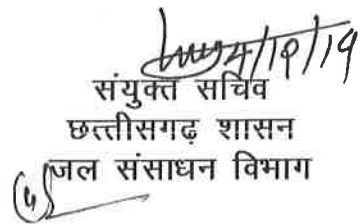 4/10/19
संयुक्त सचिव
छत्तीसगढ़ शासन
जल संसाधन विभाग